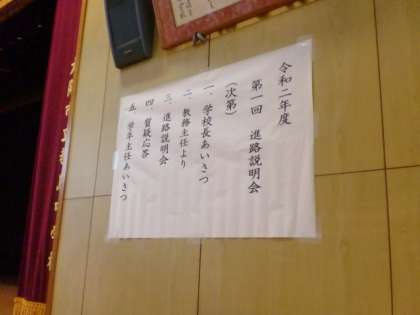 令和二年度
第一回 進路説明会
(次第)
一、学校長あいさつ
二、教務主任より
三、進路説明会
四、質疑応答
五、学年主任あいさつ